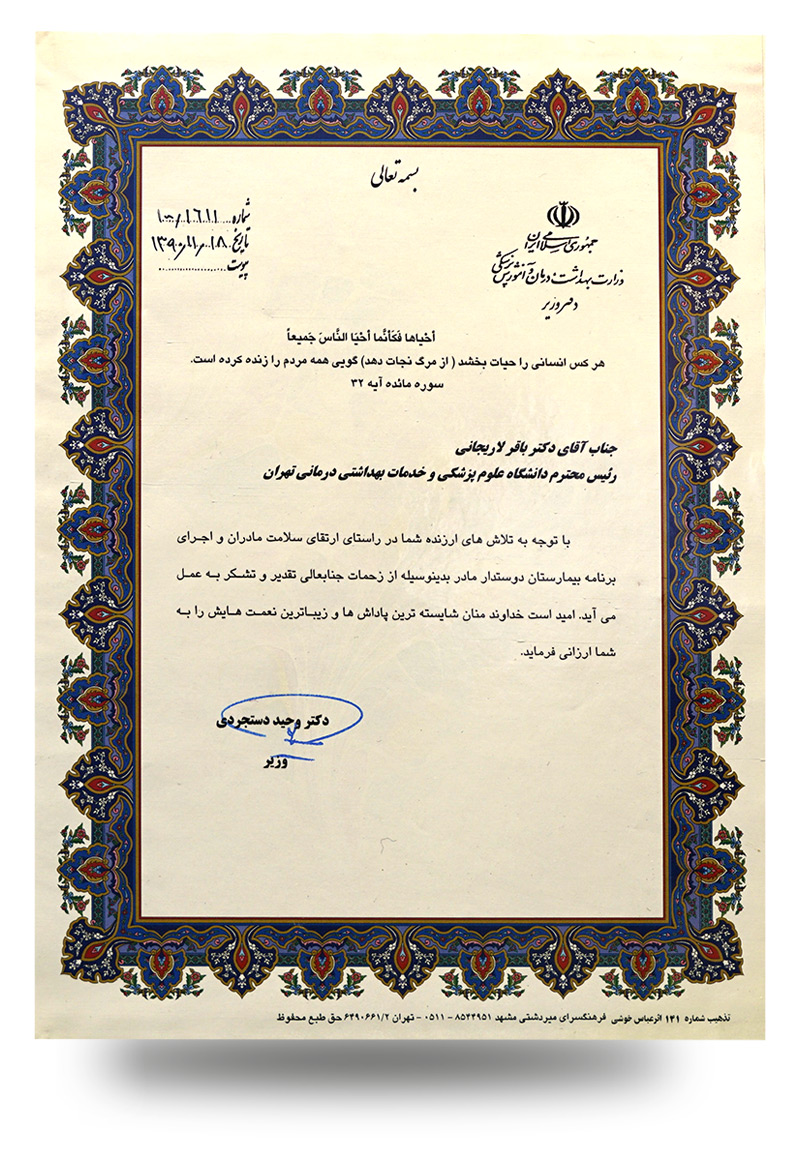 بسمه تعالی
جمهوری اسلامی ایران
وزارت بهداشت، درمان و آموزش پزشکی
دفتر وزیر
شماره
تاریخ ۱۳۹۰/۰۱/۱۸
پیوست
أحْیاها فَکَأنَّما أحْیَا النَّاسَ جَمیعاً
هر کس انسانی را حیات بخشد ( از مرگ نجات دهد) گویی همه مردم را زنده کرده است.
سوره مائده آیه ۳۲
جناب آقای دکتر باقر لاریجانی
رئیس محترم دانشگاه علوم پزشکی و خدمات بهداشتی درمانی تهران
با توجه به تلاش های ارزنده شما در راستای ارتقای سلامت مادران و اجرای
برنامه بیمارستان دوستدار مادر بدینوسیله از زحمات جنابعالی تقدیر و تشکر به عمل
می آید. امید است خداوند منان شایسته ترین پاداش ها و زیباترین نعمت هایش را به
شما ارزانی فرماید.
دکتر وحید دستجردی
وزیر
تذهیب شماره ۱۳۱ اثر عباس خوشی فرهنگسرای میردشتی مشهد ۸۵۴۴۹۵۱ - ۰۵۱۱ - تهران ۶۴۹۰۶۶۱/۲ حق طبع محفوظ